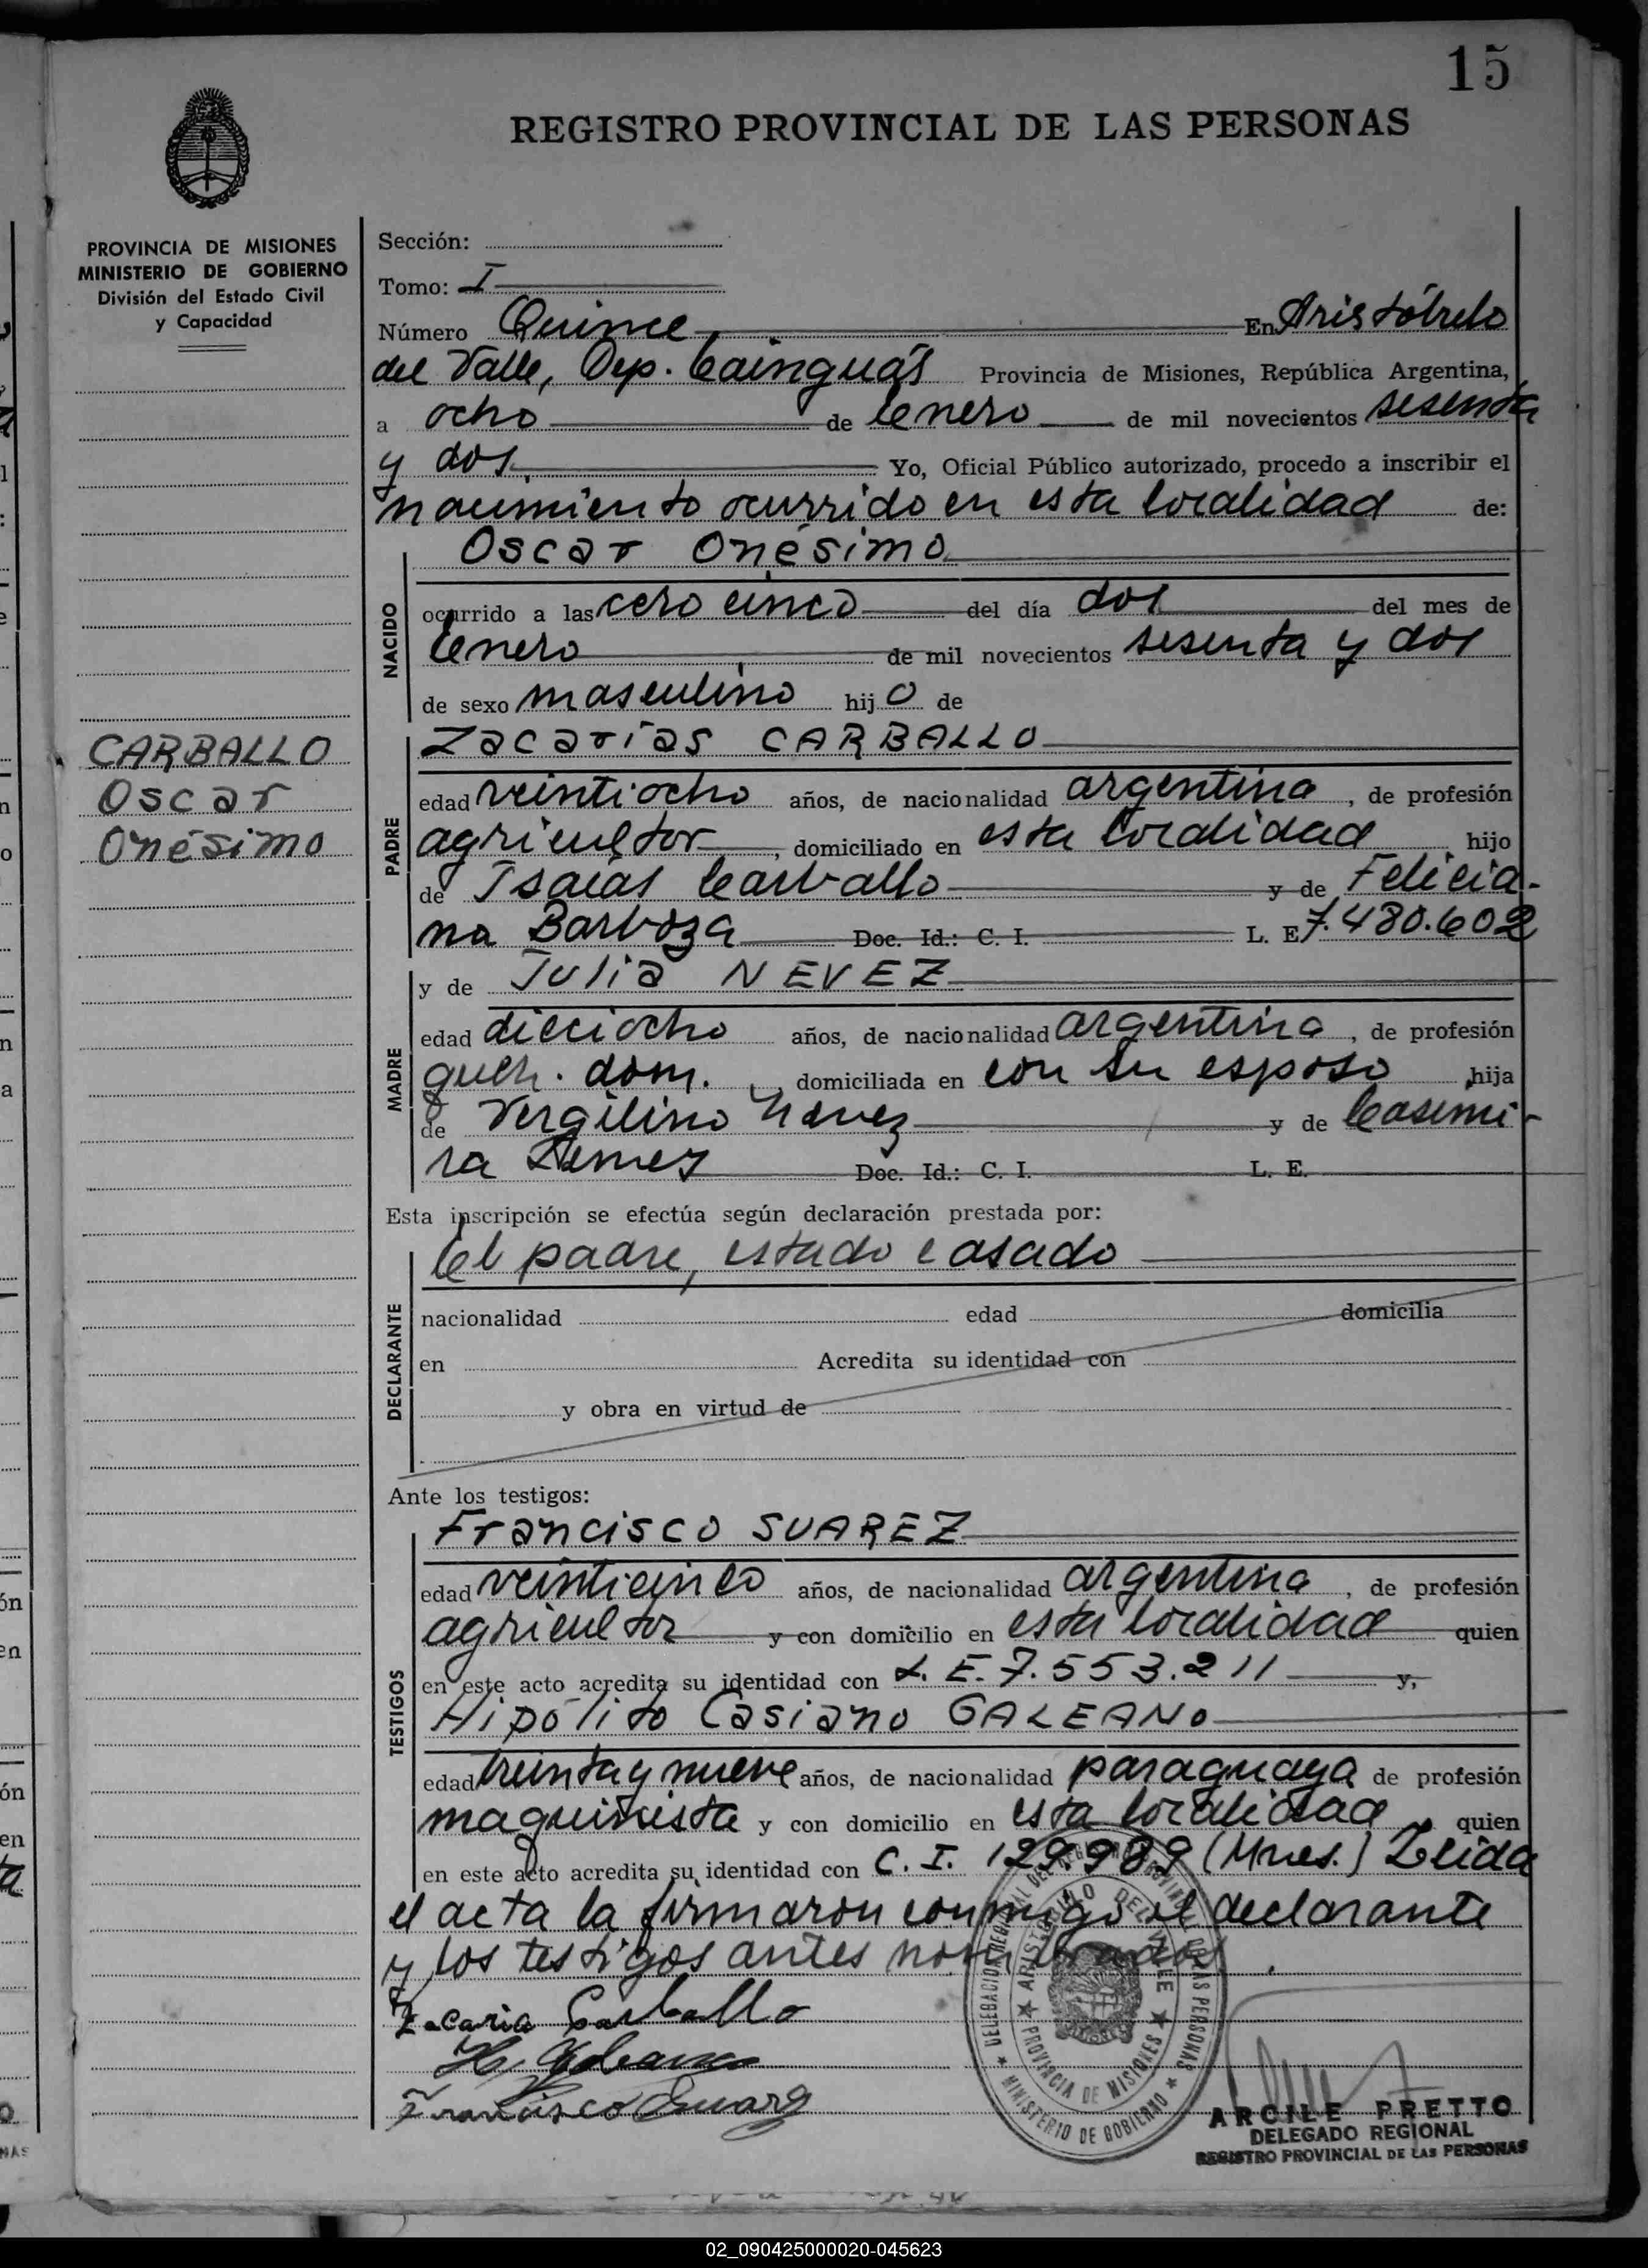 15
REGISTRO PROVINCIAL DE LAS PERSONAS
PROVINCIA DE MISIONES
MINISTERIO DE GOBIERNO
División del Estado Civil
y Capacidad
CARBALLO
Oscar
Onésimo
Sección:
Tomo: I
Número Quince En Aristóbulo
del Valle, Dep. Cainguás Provincia de Misiones, República Argentina,
a ocho de Enero de mil novecientos sesenta
y dos Yo, Oficial Público autorizado, procedo a inscribir el
nacimiento ocurrido en esta localidad de:
Oscar Onésimo
NACIDO
ocurrido a las cero cinco del día dos del mes de
Enero de mil novecientos sesenta y dos
de sexo masculino hijo de
Zacarías CARBALLO
PADRE
edad veintiocho años, de nacionalidad argentina, de profesión
agricultor, domiciliado en esta localidad hijo
de Isaías Carballo y de Felicia-
na Barboza Doc. Id.: C. I. L. E 7.480.602
y de Julia NEVEZ
MADRE
edad dieciocho años, de nacionalidad argentina, de profesión
queh. dom., domiciliada en con su esposo, hija
de Vergilino Nevez y de Casimi-
ra Doc. Id.: C. I. L. E.
Esta inscripción se efectúa según declaración prestada por:
el padre, estado casado
DECLARANTE
nacionalidad edad domicilia
en Acredita su identidad con
y obra en virtud de
Ante los testigos:
Francisco SUAREZ
TESTIGOS
edad veinticinco años, de nacionalidad argentina, de profesión
agricultor y con domicilio en esta localidad quien
en este acto acredita su identidad con L. E. 7.553.211 y,
Hipólito Casiano GALEANO
edad treinta y nueve años, de nacionalidad paraguaya de profesión
maquinista y con domicilio en esta localidad, quien
en este acto acredita su identidad con C. I. 129.989 (Mnes.) Leída
el acta la firmaron conmigo el declarante
y los testigos antes nombrados.
Zacaria Carballo
H. Galeano
Francisco Suarez
DELEGACION REGIONAL DEL REGISTRO PROVINCIAL DE LAS PERSONAS
★ MINISTERIO DE GOBIERNO ★
★ ARISTOBULO DEL VALLE ★
PROVINCIA DE MISIONES
ARCILE PRETTO
DELEGADO REGIONAL
REGISTRO PROVINCIAL DE LAS PERSONAS
02_090425000020-045623